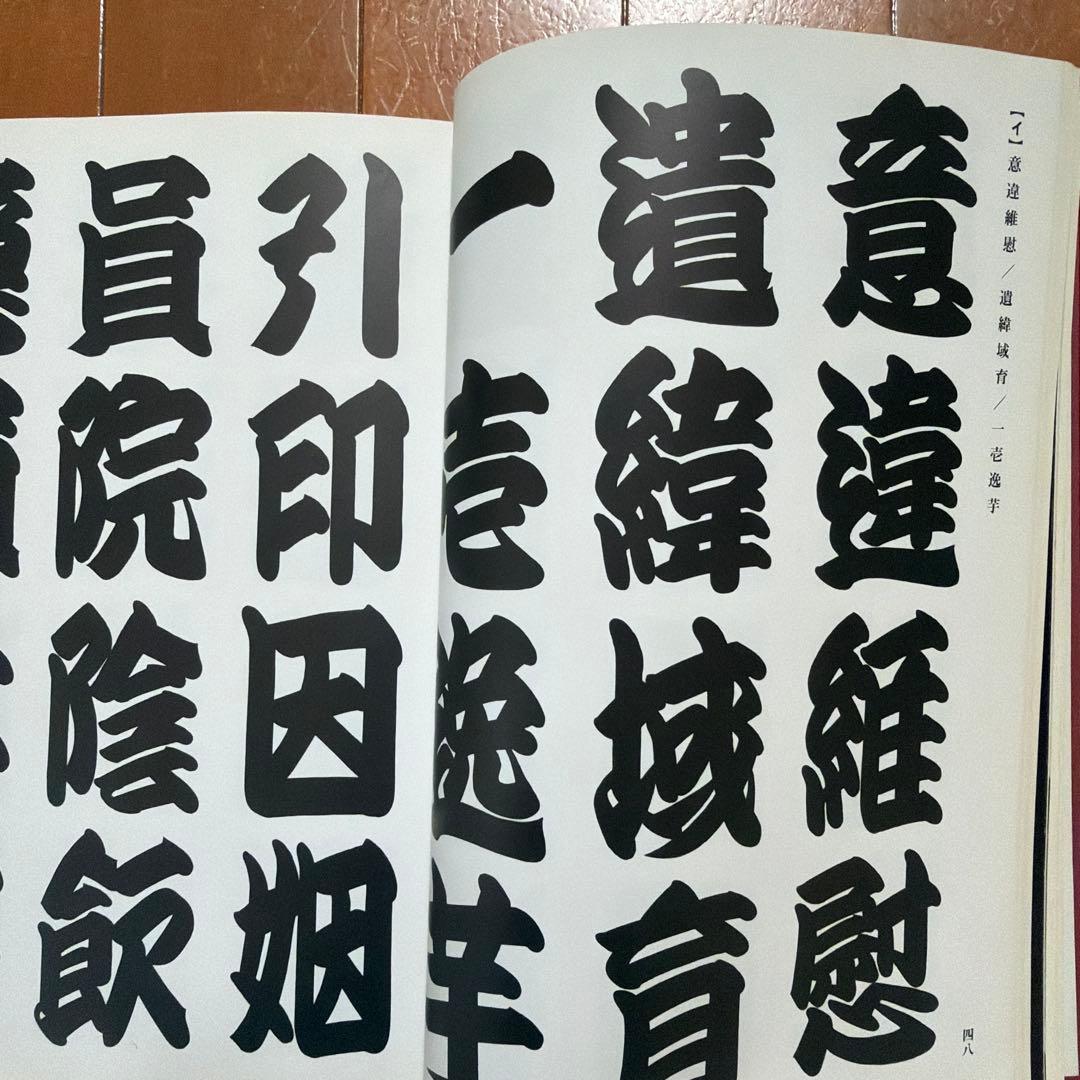 【イ】意違維慰／遺緯域育／一壱逸芋
意違維慰
遺緯域育
一壱逸芋
四八
引印因姻
員院陰飲